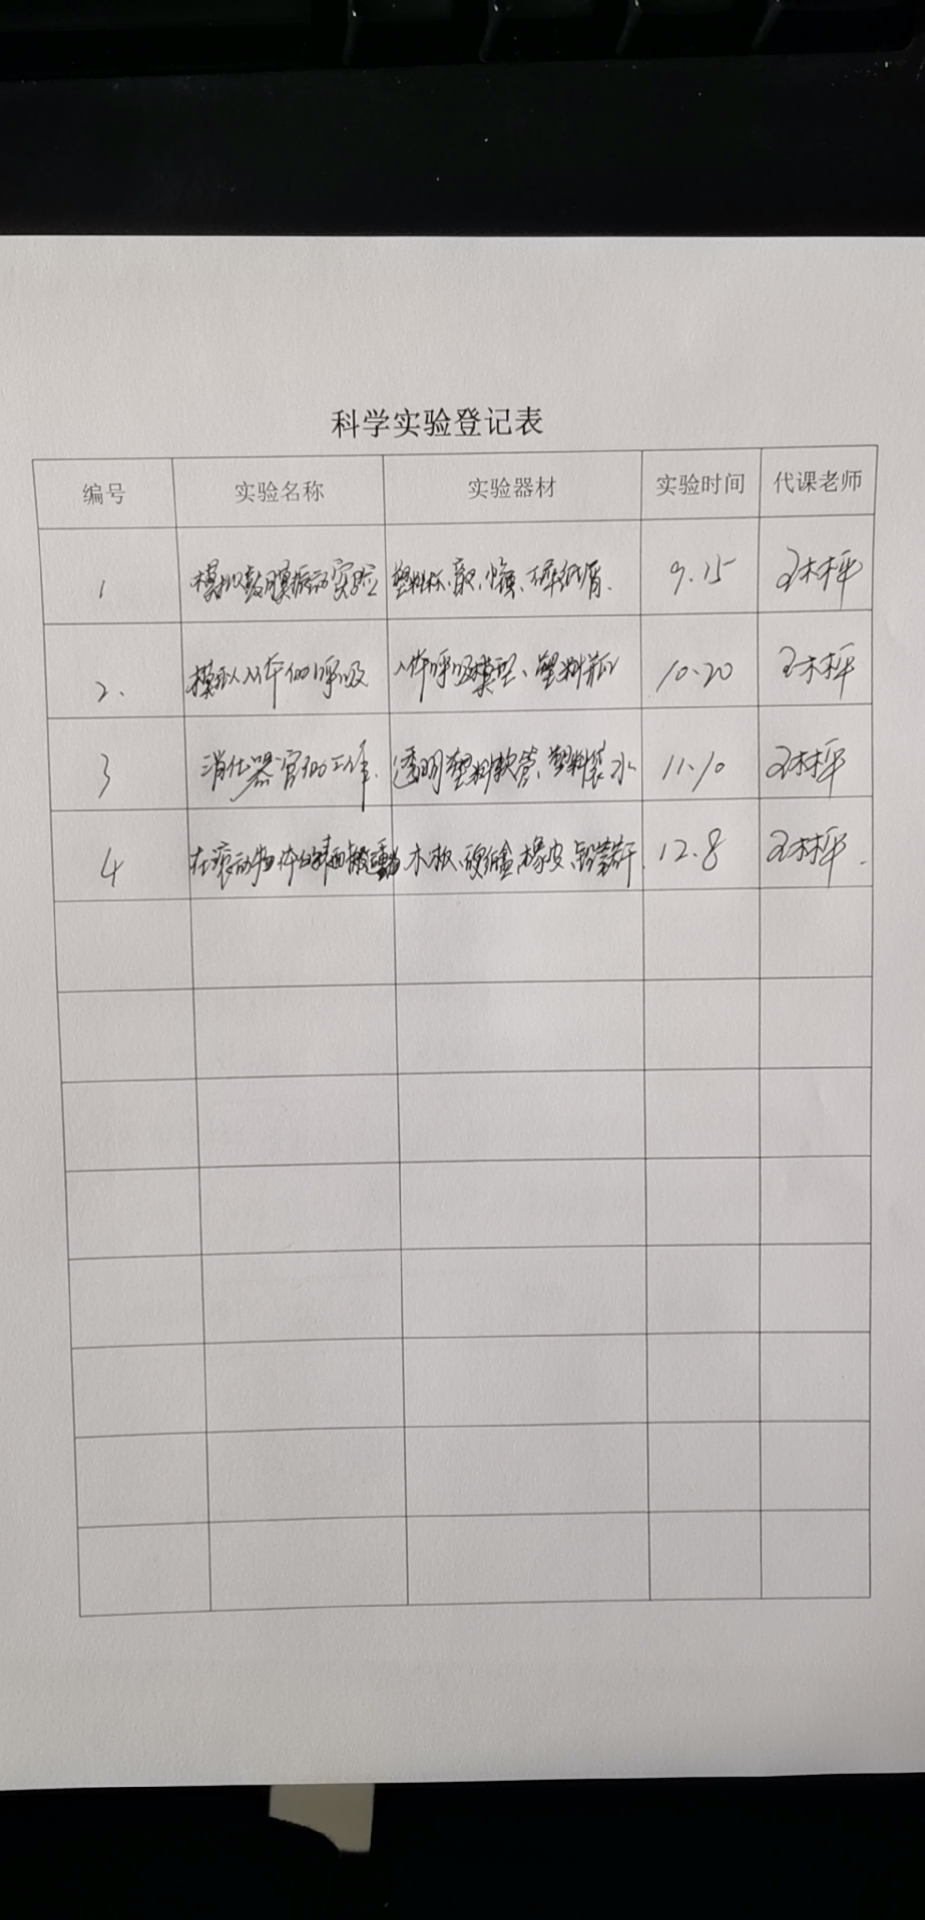 科学实验登记表
编号 实验名称 实验器材 实验时间 代课老师
1 模拟鼓膜振动实验 塑料杯、音叉、 纸屑. 9.15
2. 模拟人体的呼吸 人体呼吸模型、塑料瓶 10.20
3 消化器官的工作. 透明塑料软管、塑料袋水 11.10
4 在滚动物体的表面 运动 木板、硬纸盒、橡皮、铅笔若干. 12.8